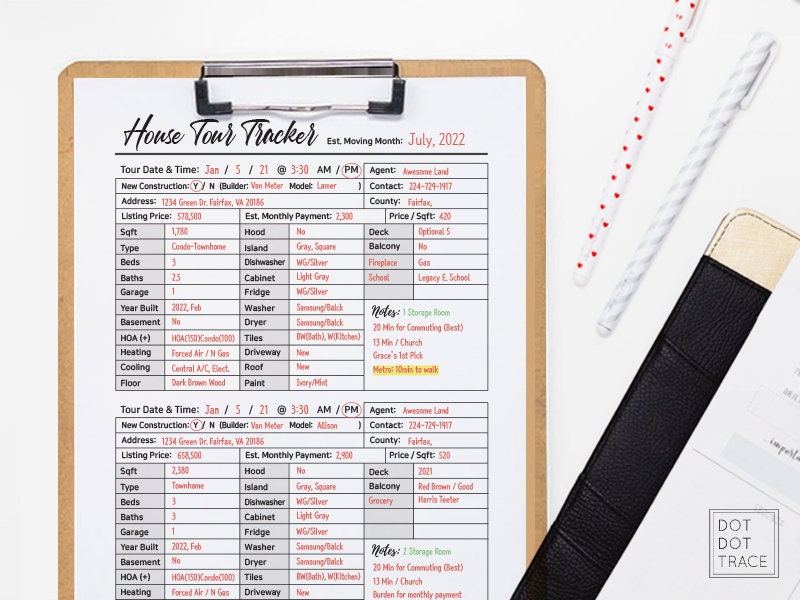 House Tour Tracker Est. Moving Month: July, 2022
Tour Date & Time: Jan / 5 / 21 @ 3:30 AM / PM Agent: Awesome Land
New Construction: Y / N (Builder: Van Meter Model: Lamer ) Contact: 224-729-1917
Address: 1234 Green Dr. Fairfax, VA 20186 County: Fairfax,
Listing Price: 578,500 Est. Monthly Payment: 2,300 Price / Sqft: 420
Sqft 1,780 Hood No Deck Optional 5
Type Condo-Townhome Island Gray, Square Balcony No
Beds 3 Dishwasher WG/Silver Fireplace Gas
Baths 2.5 Cabinet Light Gray School Legacy E. School
Garage 1 Fridge WG/Silver
Year Built 2022, Feb Washer Samsung/Balck Notes: 1 Storage Room
Basement No Dryer Samsung/Balck 20 Min for Commuting (Best)
HOA (+) HOA(150)Condo(100) Tiles BW(Bath), W(Kitchen) 13 Min / Church
Heating Forced Air / N Gas Driveway New Grace's 1st Pick
Cooling Central A/C, Elect. Roof New Metro: 10min to walk
Floor Dark Brown Wood Paint Ivory/Mint
Tour Date & Time: Jan / 5 / 21 @ 3:30 AM / PM Agent: Awesome Land
New Construction: Y / N (Builder: Van Meter Model: Allison ) Contact: 224-729-1917
Address: 1234 Green Dr. Fairfax, VA 20186 County: Fairfax,
Listing Price: 658,500 Est. Monthly Payment: 2,900 Price / Sqft: 520
Sqft 2,380 Hood No Deck 2021
Type Townhome Island Gray, Square Balcony Red Brown / Good
Beds 3 Dishwasher WG/Silver Grocery Harris Teeter
Baths 3 Cabinet Light Gray
Garage 1 Fridge WG/Silver
Year Built 2022, Feb Washer Samsung/Balck Notes: 2 Storage Room
Basement No Dryer Samsung/Balck 20 Min for Commuting (Best)
HOA (+) HOA(150)Condo(100) Tiles BW(Bath), W(Kitchen) 13 Min / Church
Heating Forced Air / N Gas Driveway New Burden for monthly payment
DOT
DOT
TRACE